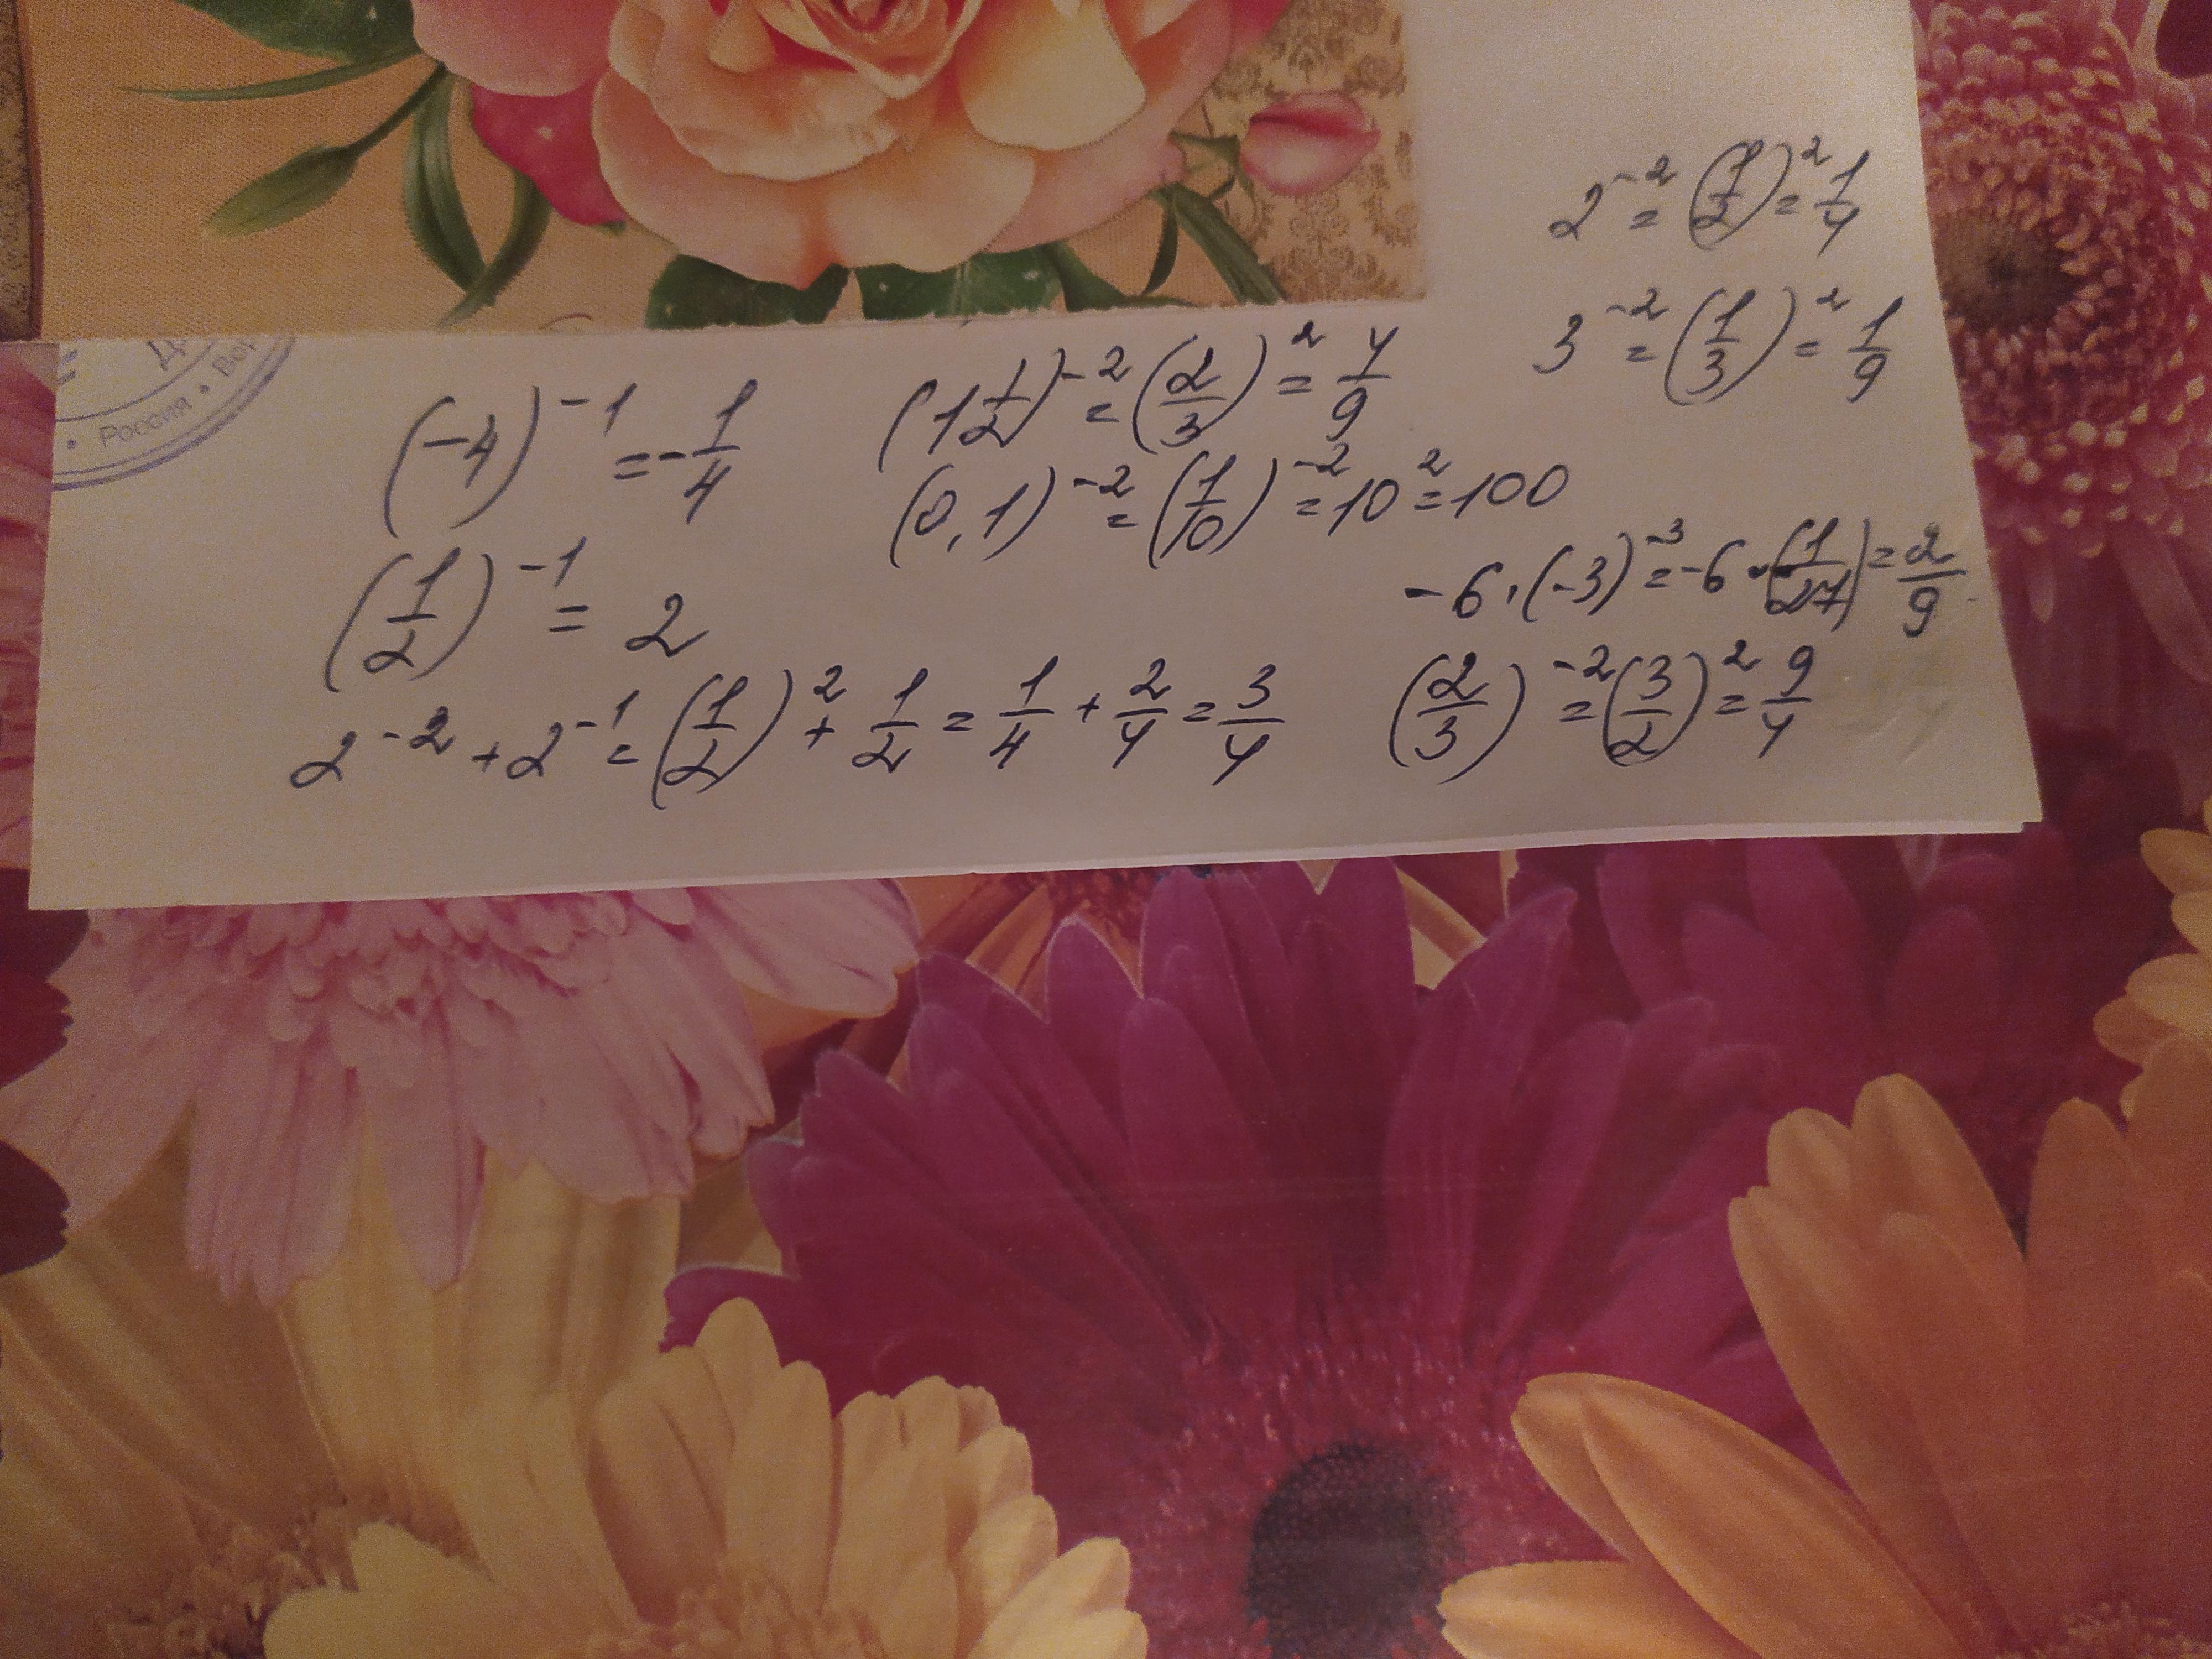 2^-2 = (1/2)^2 = 1/4
3^-2 = (1/3)^2 = 1/9
Россия •
(-4)^-1 = -1/4
(1 1/2)^-2 = (2/3)^2 = 4/9
(0,1)^-2 = (1/10)^-2 = 10^2 = 100
(1/2)^-1 = 2
-6·(-3)^-3 = -6·(-1/27) = 2/9
2^-2 + 2^-1 = (1/2)^2 + 1/2 = 1/4 + 2/4 = 3/4
(2/3)^-2 = (3/2)^2 = 9/4